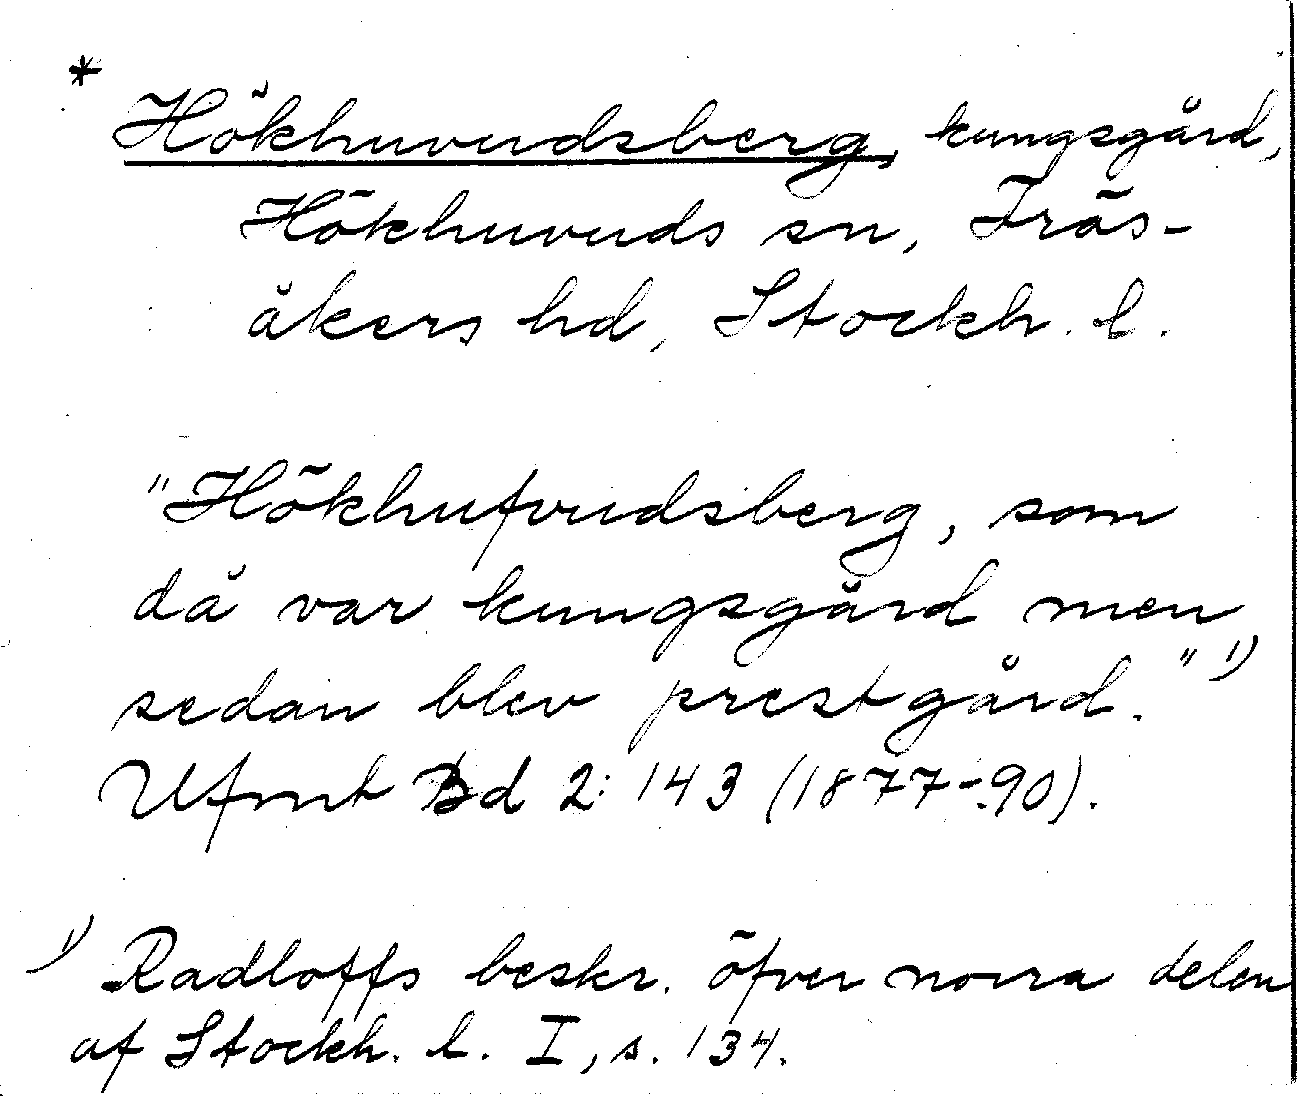 * Hökhuvudsberg, kungsgård,
Hökhuvuds sn, Frös-
åkers hd, Stockh. l.
"Hökhufvudsberg, som
då var kungsgård men
sedan blev prestgård." 1)
Ufmt Bd 2: 143 (1877-90).
1) Radloffs beskr. öfver norra delen
af Stockh. l. I, s. 134.